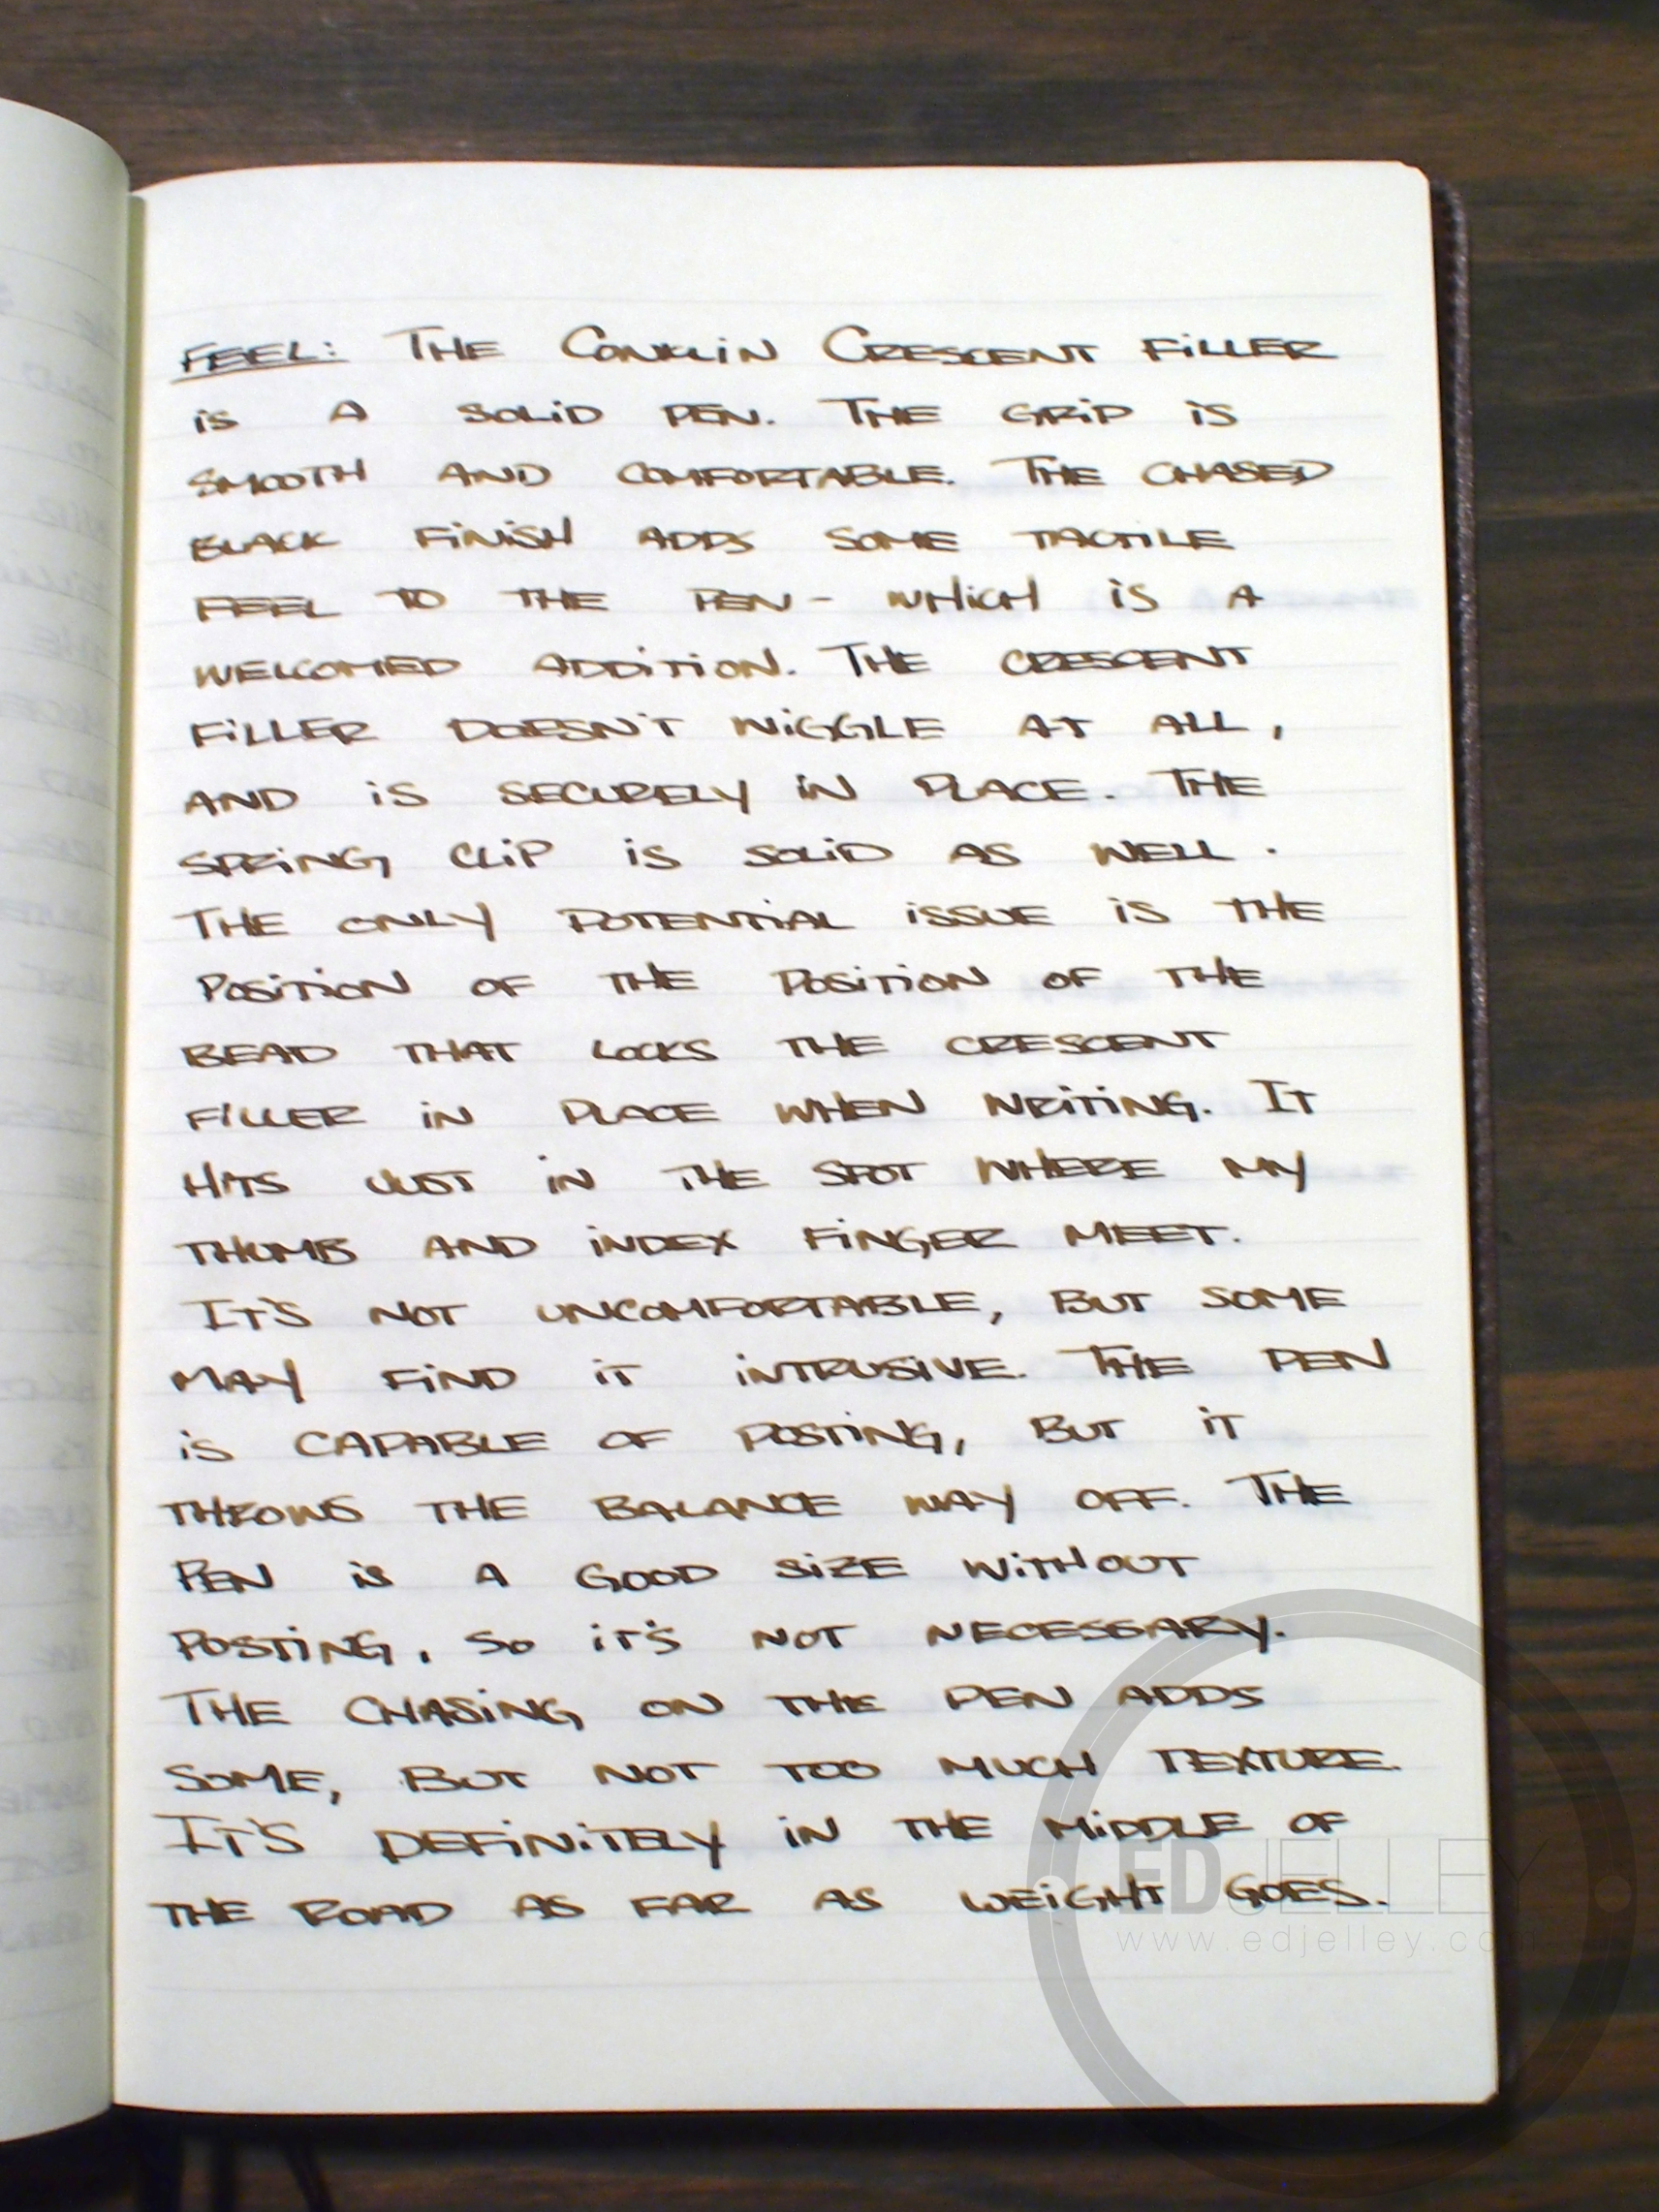 FEEL: THE CONKLIN CRESCENT FILLER
iS A SOLiD PEN. THE GRiP iS
SMOOTH AND COMFORTABLE. THE CHASED
BLACK FiNiSH ADDS SOME TACTiLE
FEEL TO THE PEN - WHiCH iS A
WELCOMED ADDiTiON. THE CRESCENT
FiLLER DOESN'T WiGGLE AT ALL,
AND iS SECURELY iN PLACE. THE
SPRiNG CLiP iS SOLiD AS WELL.
THE ONLY POTENTiAL iSSUE iS THE
POSiTiON OF THE POSiTiON OF THE
BEAD THAT LOCKS THE CRESCENT
FiLLER iN PLACE WHEN WRiTiNG. IT
HiTS JUST iN THE SPOT WHERE MY
THUMB AND iNDEX FiNGER MEET.
IT'S NOT UNCOMFORTABLE, BUT SOME
MAY FiND iT iNTRUSiVE. THE PEN
iS CAPABLE OF POSTiNG, BUT iT
THROWS THE BALANCE WAY OFF. THE
PEN iS A GOOD SiZE WiTHOUT
POSTiNG, SO iT'S NOT NECESSARY.
THE CHASiNG ON THE PEN ADDS
SOME, BUT NOT TOO MUCH TEXTURE.
IT'S DEFiNiTELY iN THE MiDDLE OF
THE ROAD AS FAR AS WEiGHT GOES.
EDJELLEY
www.edjelley.com